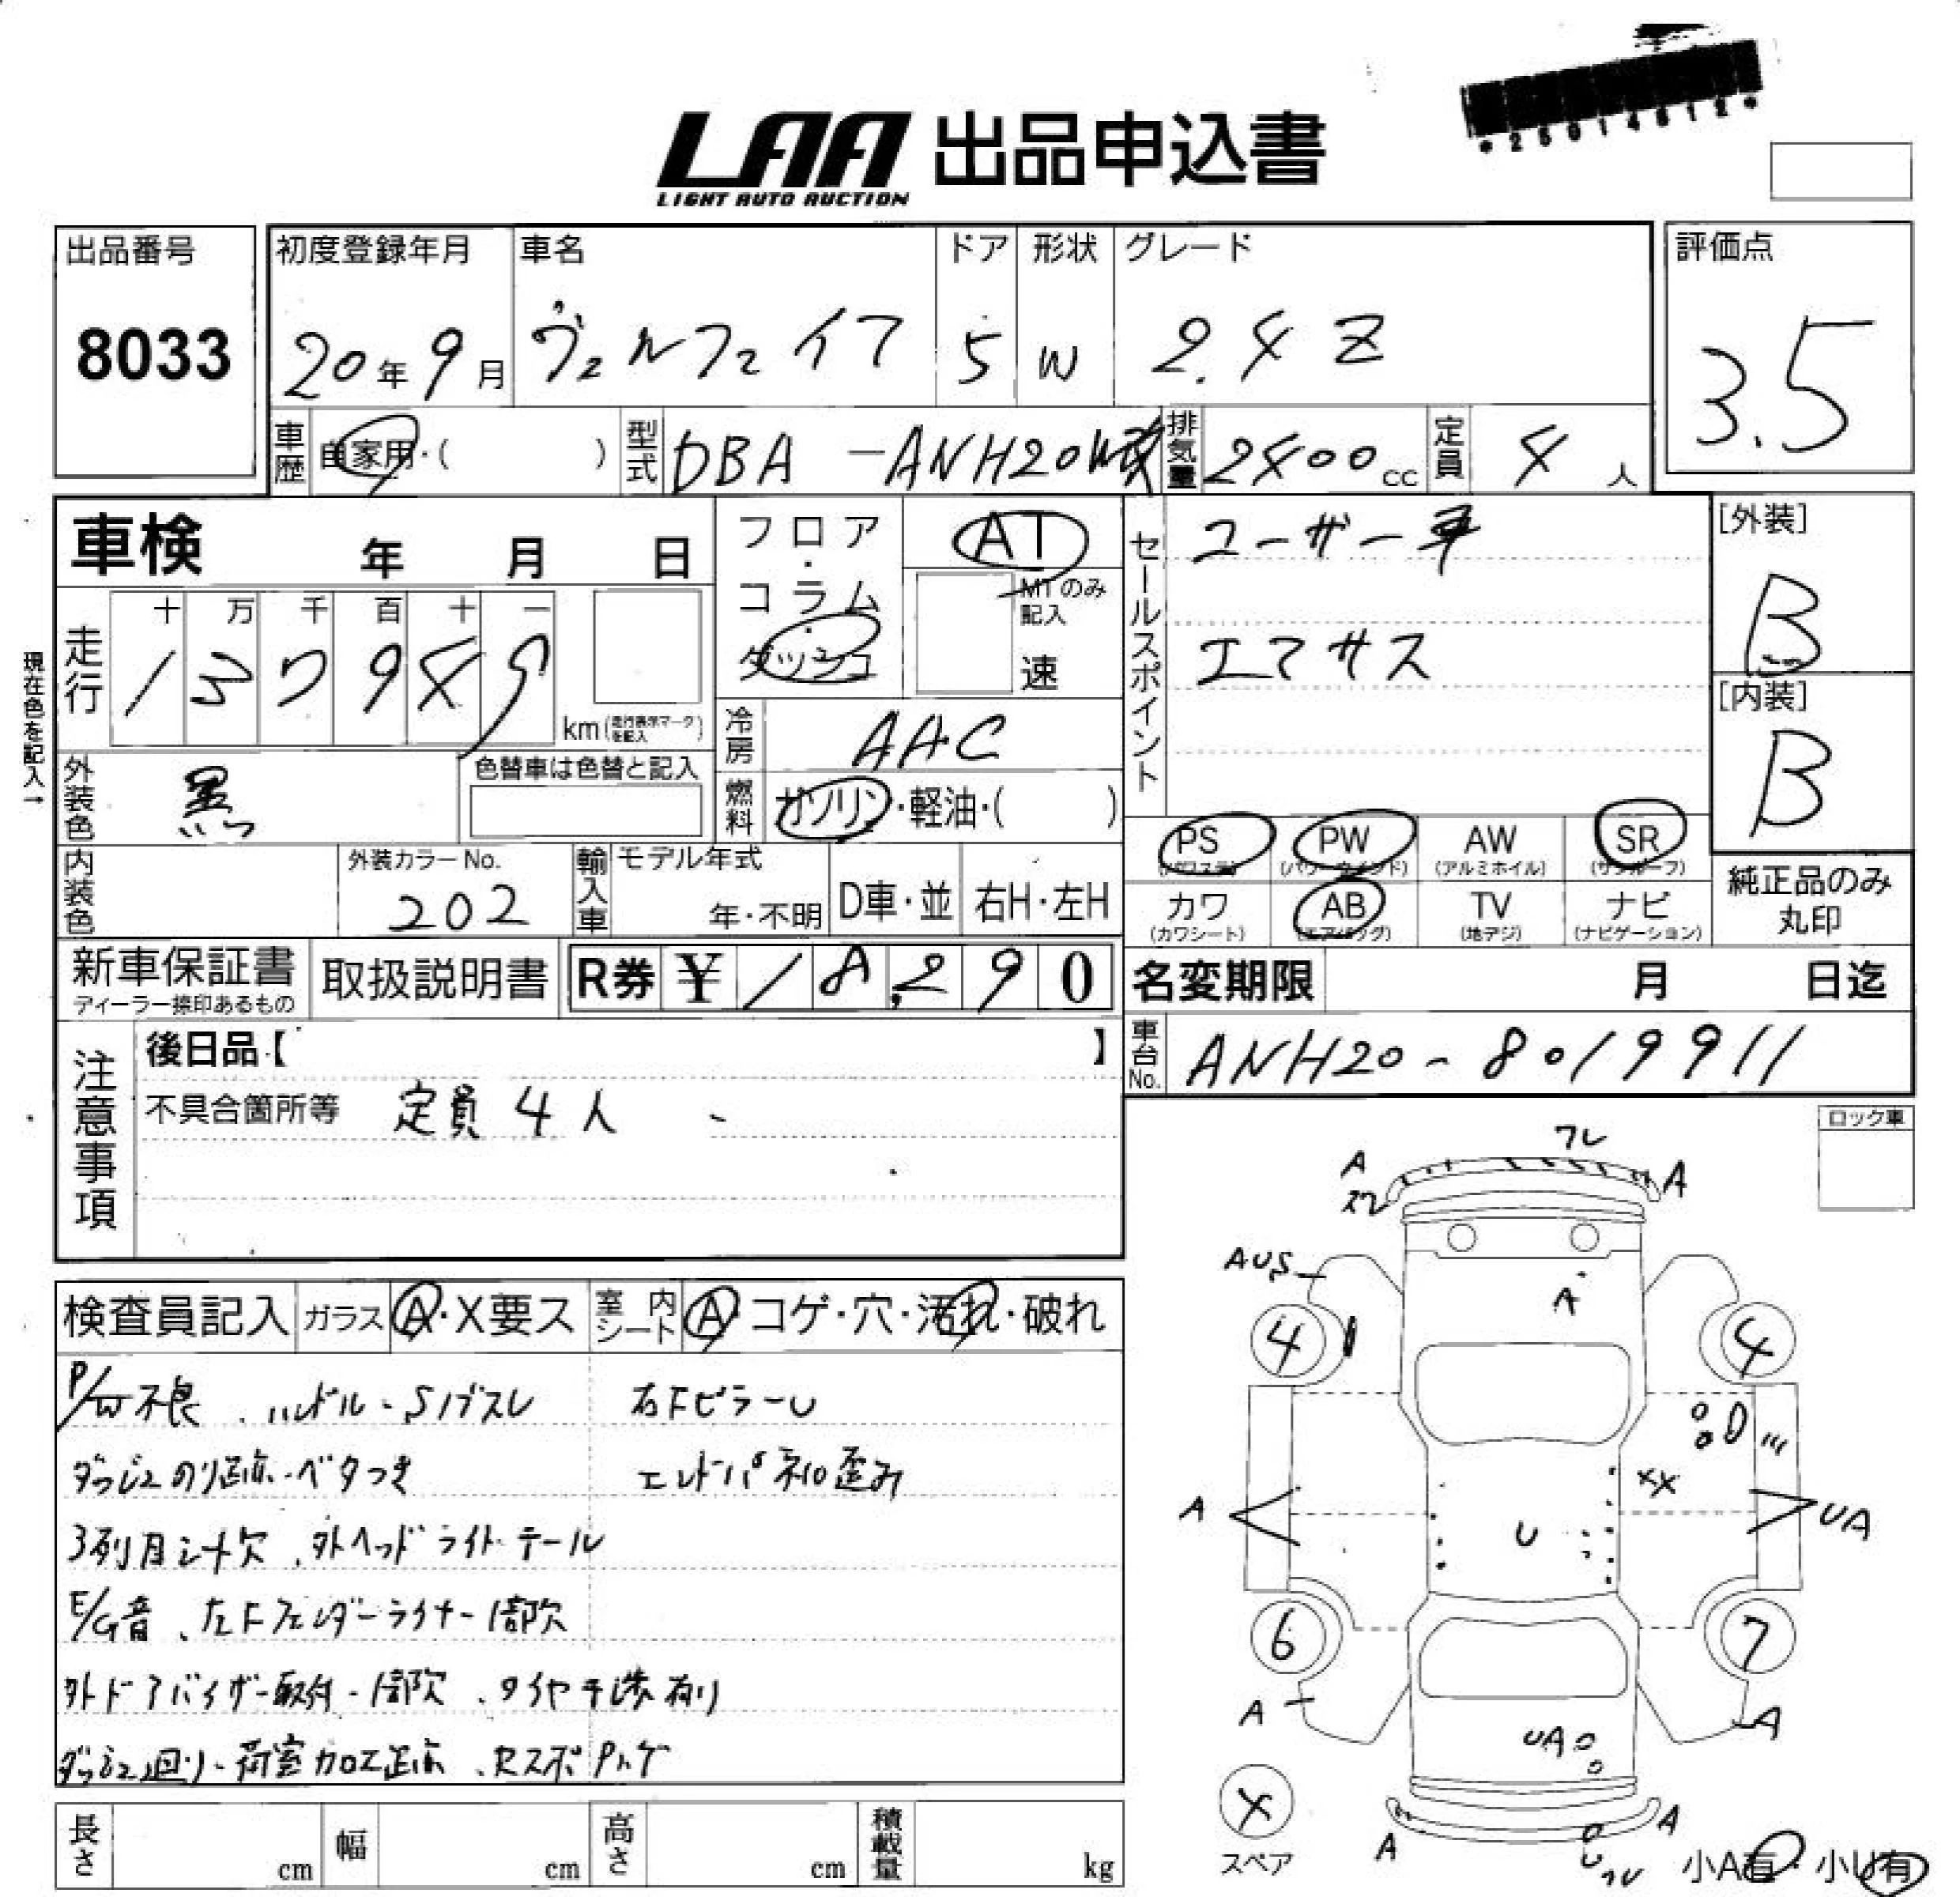 *25014812*
LAA 出品申込書
LIGHT AUTO AUCTION
出品番号 初度登録年月 車名 ドア 形状 グレード 評価点
8033 20年9月 ヴェルファイア 5 W 2.4 Z 3.5
車歴 自家用・( ) 型式 DBA-ANH20W 排気量 2400cc 定員 4人
車検 年 月 日 フロア・コラム・ダッシュ AT
MTのみ記入 速
セールスポイント ユーザー車
エアサス
[外装] B
[内装] B
現在色を記入→
走行 十 万 千 百 十 一
137949 km (走行表示マークを記入)
冷房 AAC
外装色 黒 色替車は色替と記入
燃料 ガソリン・軽油・( )
PS (パワステ) PW (パワーウインド) AW (アルミホイル) SR (サンルーフ)
カワ (カワシート) AB (エアバッグ) TV (地デジ) ナビ (ナビゲーション)
純正品のみ丸印
内装色 外装カラーNo. 202 輸入車 モデル年式 年・不明 D車・並 右H・左H
新車保証書 ディーラー捺印あるもの 取扱説明書 R券 ¥18,290
名変期限 月 日迄
車台No. ANH20-8019911
注意事項 後日品【 】
不具合箇所等 定員4人
ロック車
検査員記入 ガラス A・X要ス 室内シート A・コゲ・穴・汚れ・破れ
P/W不良、ハンドル・Sノブスレ 右FピラーU
ダッシュのり跡・ベタつき エンドパネル歪み
3列目シート欠、外ヘッドライト・テール
E/G音、左Fフェンダーライナー1部欠
外ドアバイザー取付・1部欠、タイヤ干渉有り
ダッシュ廻り・荷室加工跡、
長さ cm 幅 cm 高さ cm 積載量 kg
ワレ
A
A
スレ
AUS
A
4
4
XX
A
U
UA
6
7
A
A
UA
X
スペア
A
A
U
ワレ
小A有・小U有